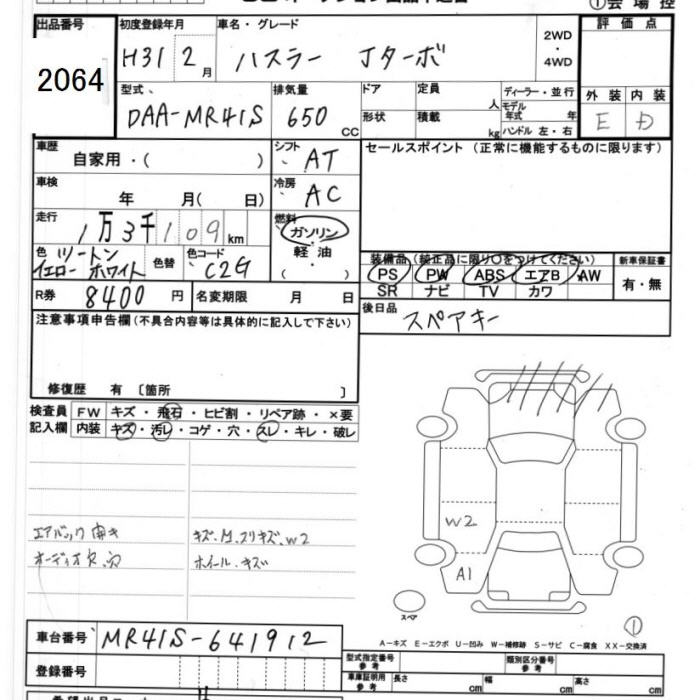 ①会場控
出品番号 初度登録年月 車名・グレード 評価点
2064 H31 2月 ハスラー Jターボ 2WD・4WD
外装 内装
E D
型式 排気量 ドア 定員 人 ディーラー・並行
DAA-MR41S 650cc 形状 積載 kg モデル年式 年
ハンドル 左・右
車歴 自家用・( ) シフト AT セールスポイント(正常に機能するものに限ります)
車検 年 月( 日) 冷房 AC
走行 1万3千109km 燃料 ガソリン・軽油・( )
色 ツートン イエローホワイト 色替 色コード C2G
装備品(純正品に限り○をつけてください) 新車保証書
PS PW ABS エアB AW 有・無
SR ナビ TV カワ
R券 8400円 名変期限 月 日 後日品
スペアキー
注意事項申告欄(不具合内容等は具体的に記入して下さい)
修復歴 有〔箇所 〕
検査員 FW キズ・飛石・ヒビ割・リペア跡・×要
記入欄 内装 キズ・汚レ・コゲ・穴・スレ・キレ・破レ
エアバック開き キズ.凹.スリキズ.W2
オーディオ欠.穴 ホイール.キズ
W2
A1
スペア
①
A-キズ E-エクボ U-凹み W-補修跡 S-サビ C-腐食 XX-交換済
車台番号 MR41S-641912
登録番号
型式指定番号 参考 類別区分番号 参考
車庫証明用 参考 長さ cm 幅 cm 高さ cm